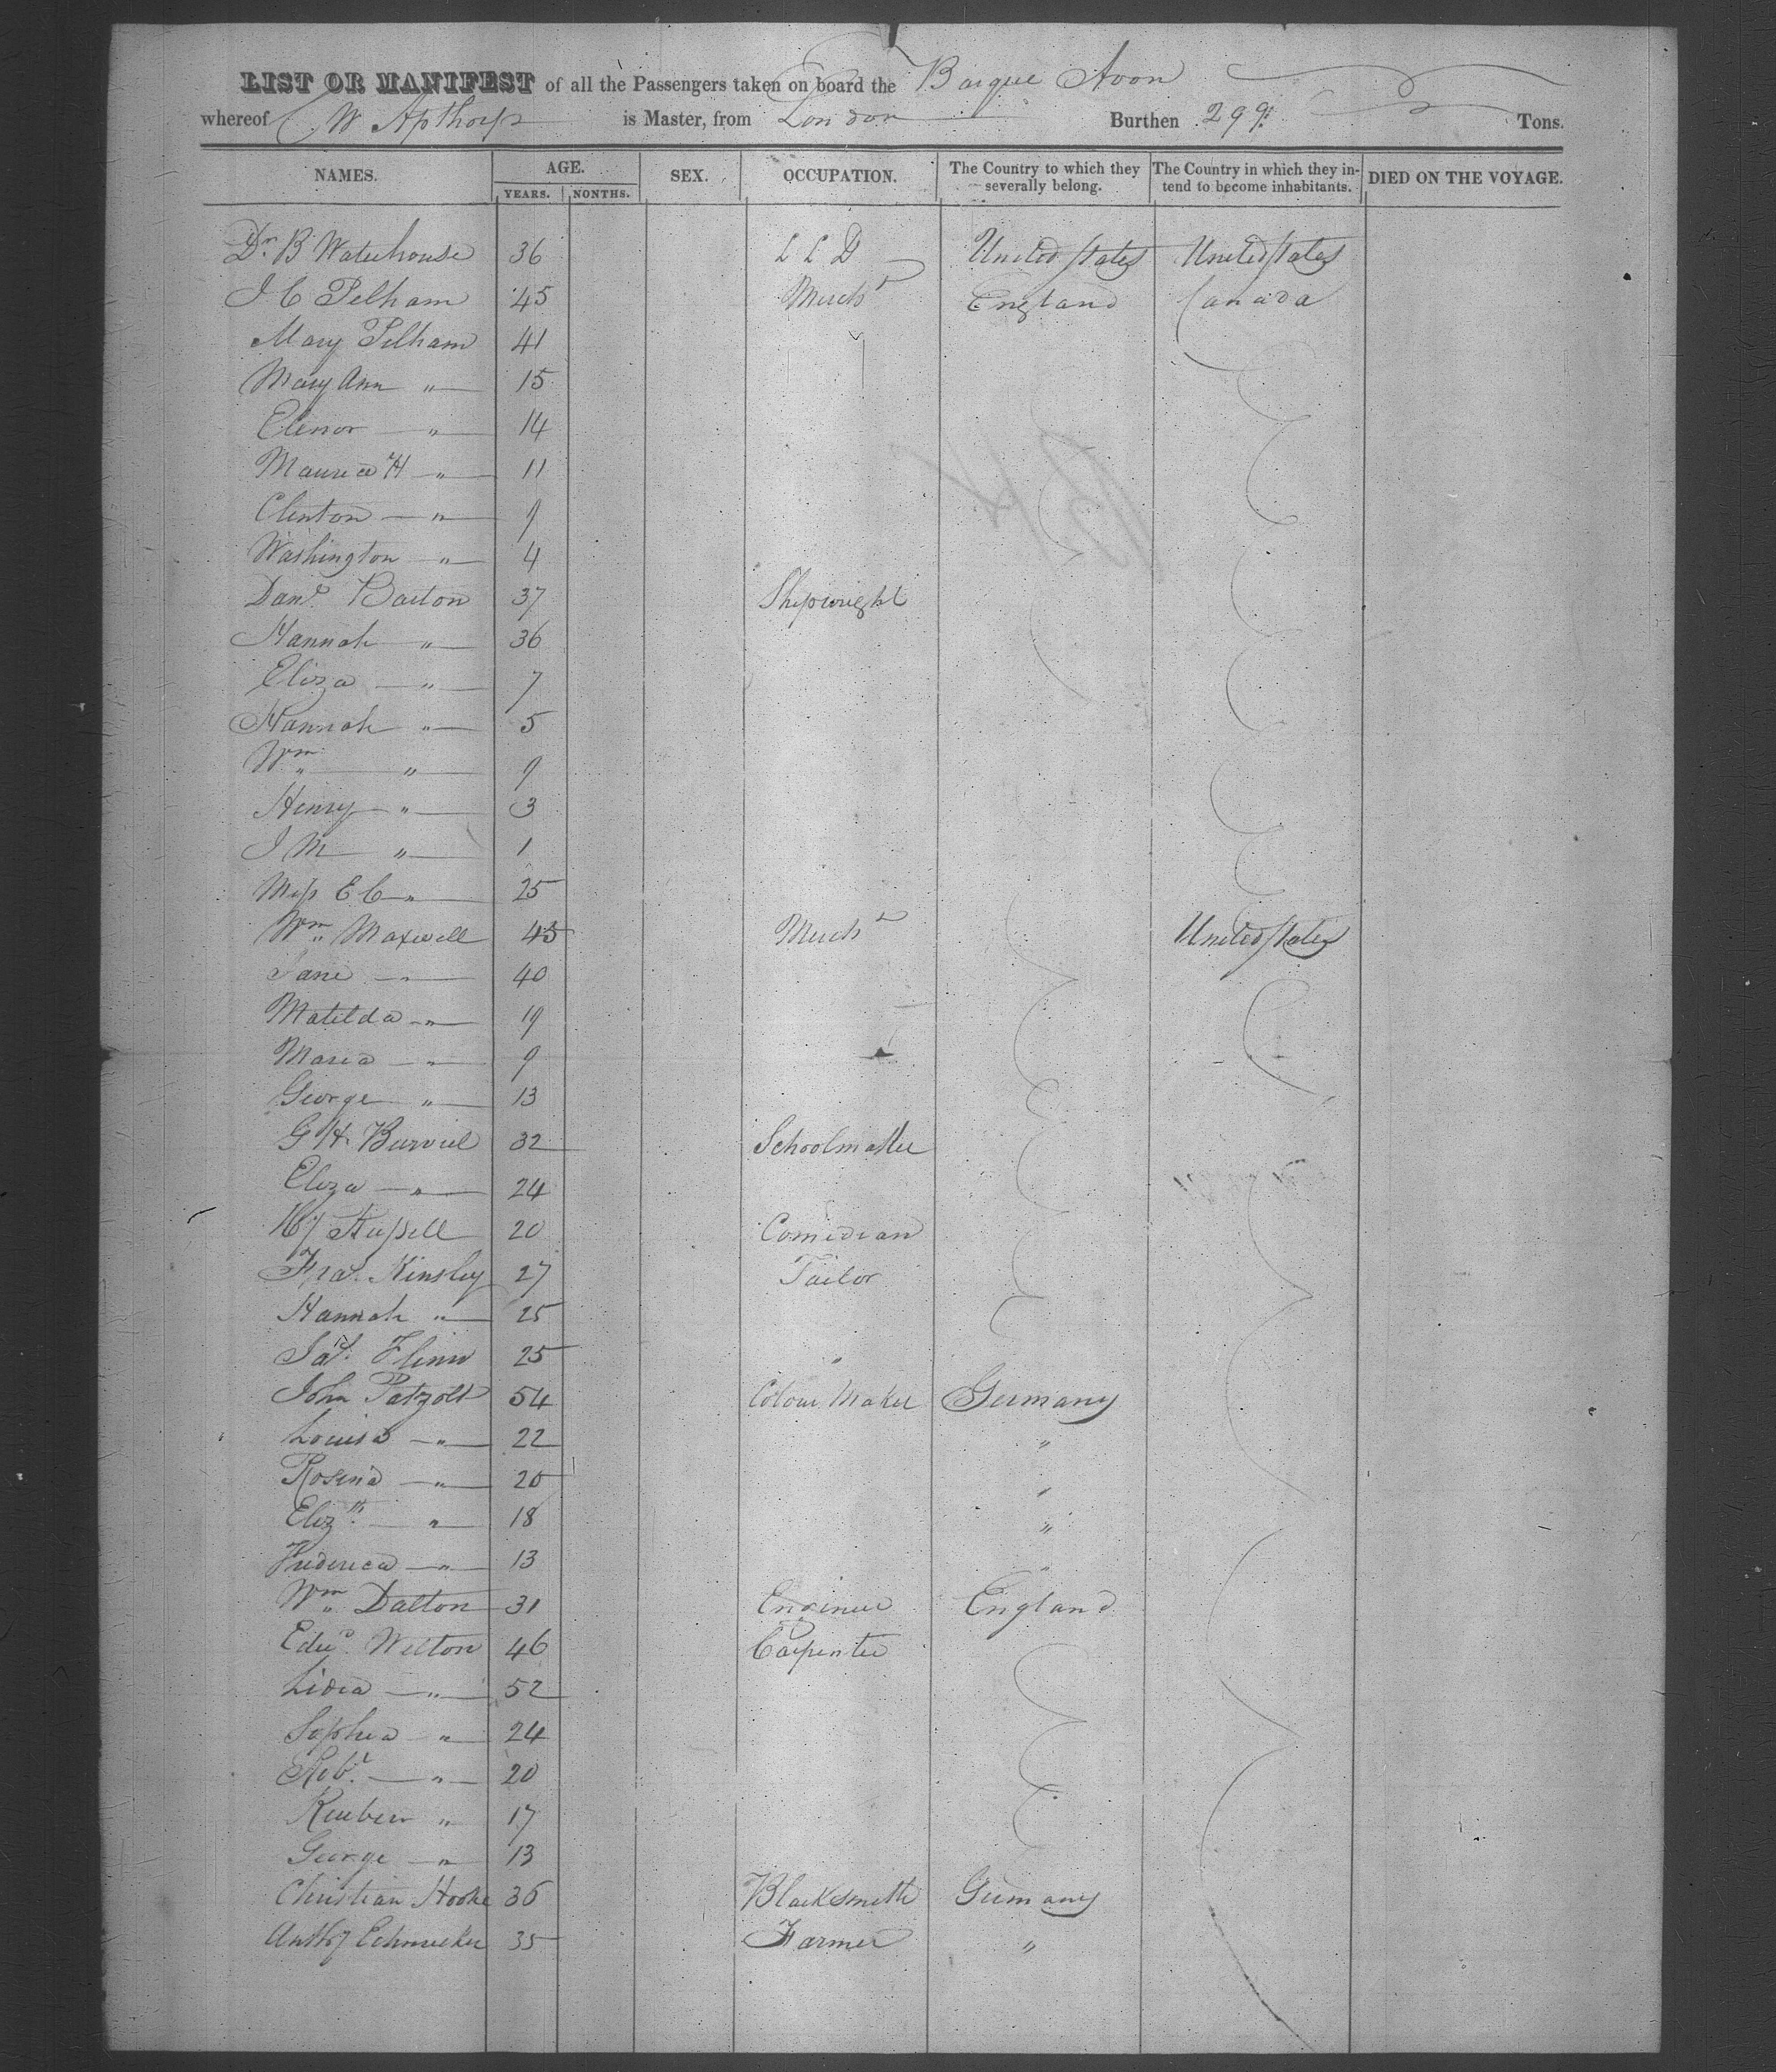 LIST OR MANIFEST of all the Passengers taken on board the Barque Avon
whereof W Apthorp is Master, from London Burthen 299 Tons.
NAMES. AGE. SEX. OCCUPATION. The Country to which they severally belong. The Country in which they intend to become inhabitants. DIED ON THE VOYAGE.
YEARS. MONTHS.
Dr. B Waterhouse 36 L L D United States United States
J C Pelham 45 Mercht England Canada
Mary Pelham 41
Mary Ann " 15
Elenor " 14
Maurice H " 11
Clinton " 9
Washington " 4
Danl. Barton 37 Shipwright
Hannah " 36
Eliza " 7
Hannah " 5
Wm " 9
Henry " 3
J M " 1
Miss E C " 25
Wm Maxwell 45 Mercht United States
Jane " 40
Matilda " 19
Maria " 9
George " 13
G H. Burviel 32 Schoolmaster
Eliza " 24
Hy Russell 20 Comedian
Fras. Kinsley 27 Tailor
Hannah " 25
Jas. Flinn 25 "
John Patzolt 54 Colour Maker Germany
Louisa " 22 "
Rosina " 20 "
Elizth. " 18 "
Frederica " 13 "
Wm Dalton 31 Engineer England
Edwd. Welton 46 Carpenter
Lidia " 52
Sophia " 24
Robt. " 20
Reuben " 17
George " 13
Christian Hooke 36 Blacksmith Germany
Anthy Schmucker 35 Farmer "